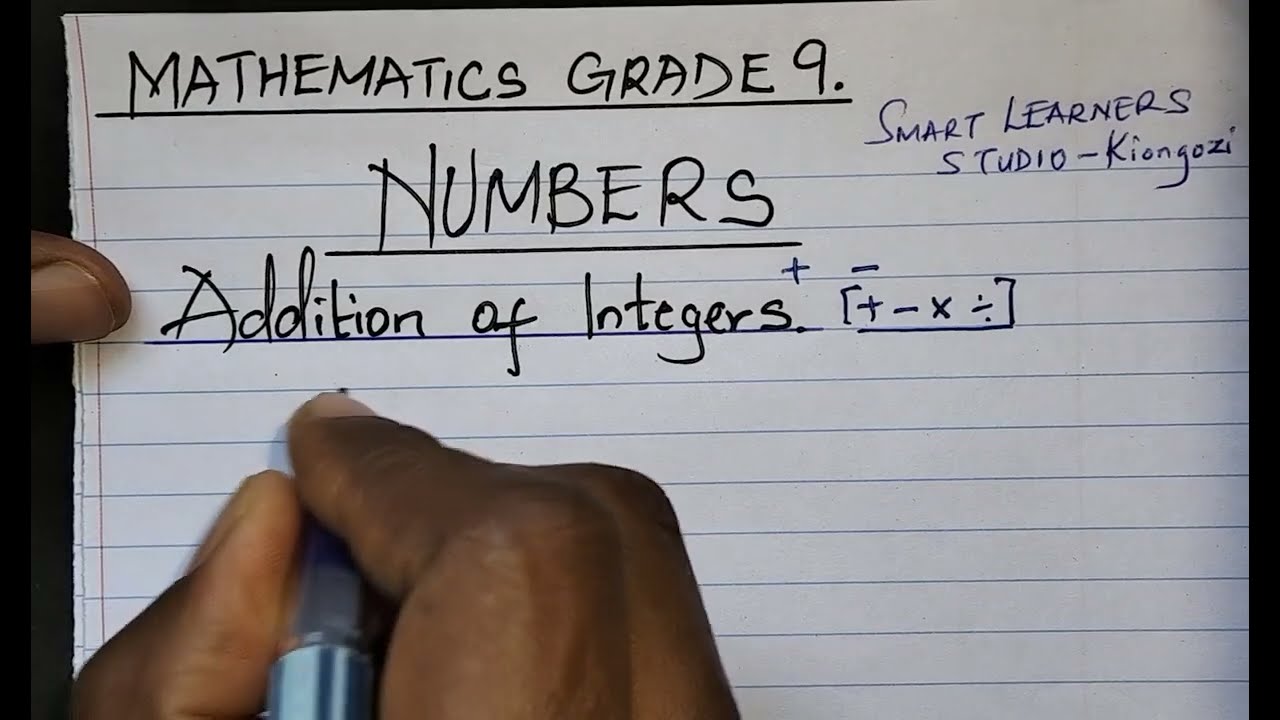 MATHEMATICS GRADE 9.
SMART LEARNERS
STUDIO - Kiongozi
NUMBERS
+ −
Addition of Integers. [+ − × ÷]